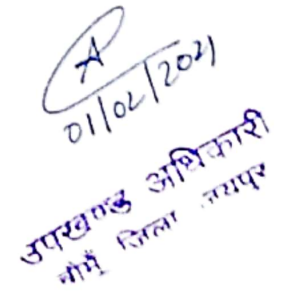 A
01/02/2021
उपखण्ड अधिकारी
चौमूँ जिला जयपुर